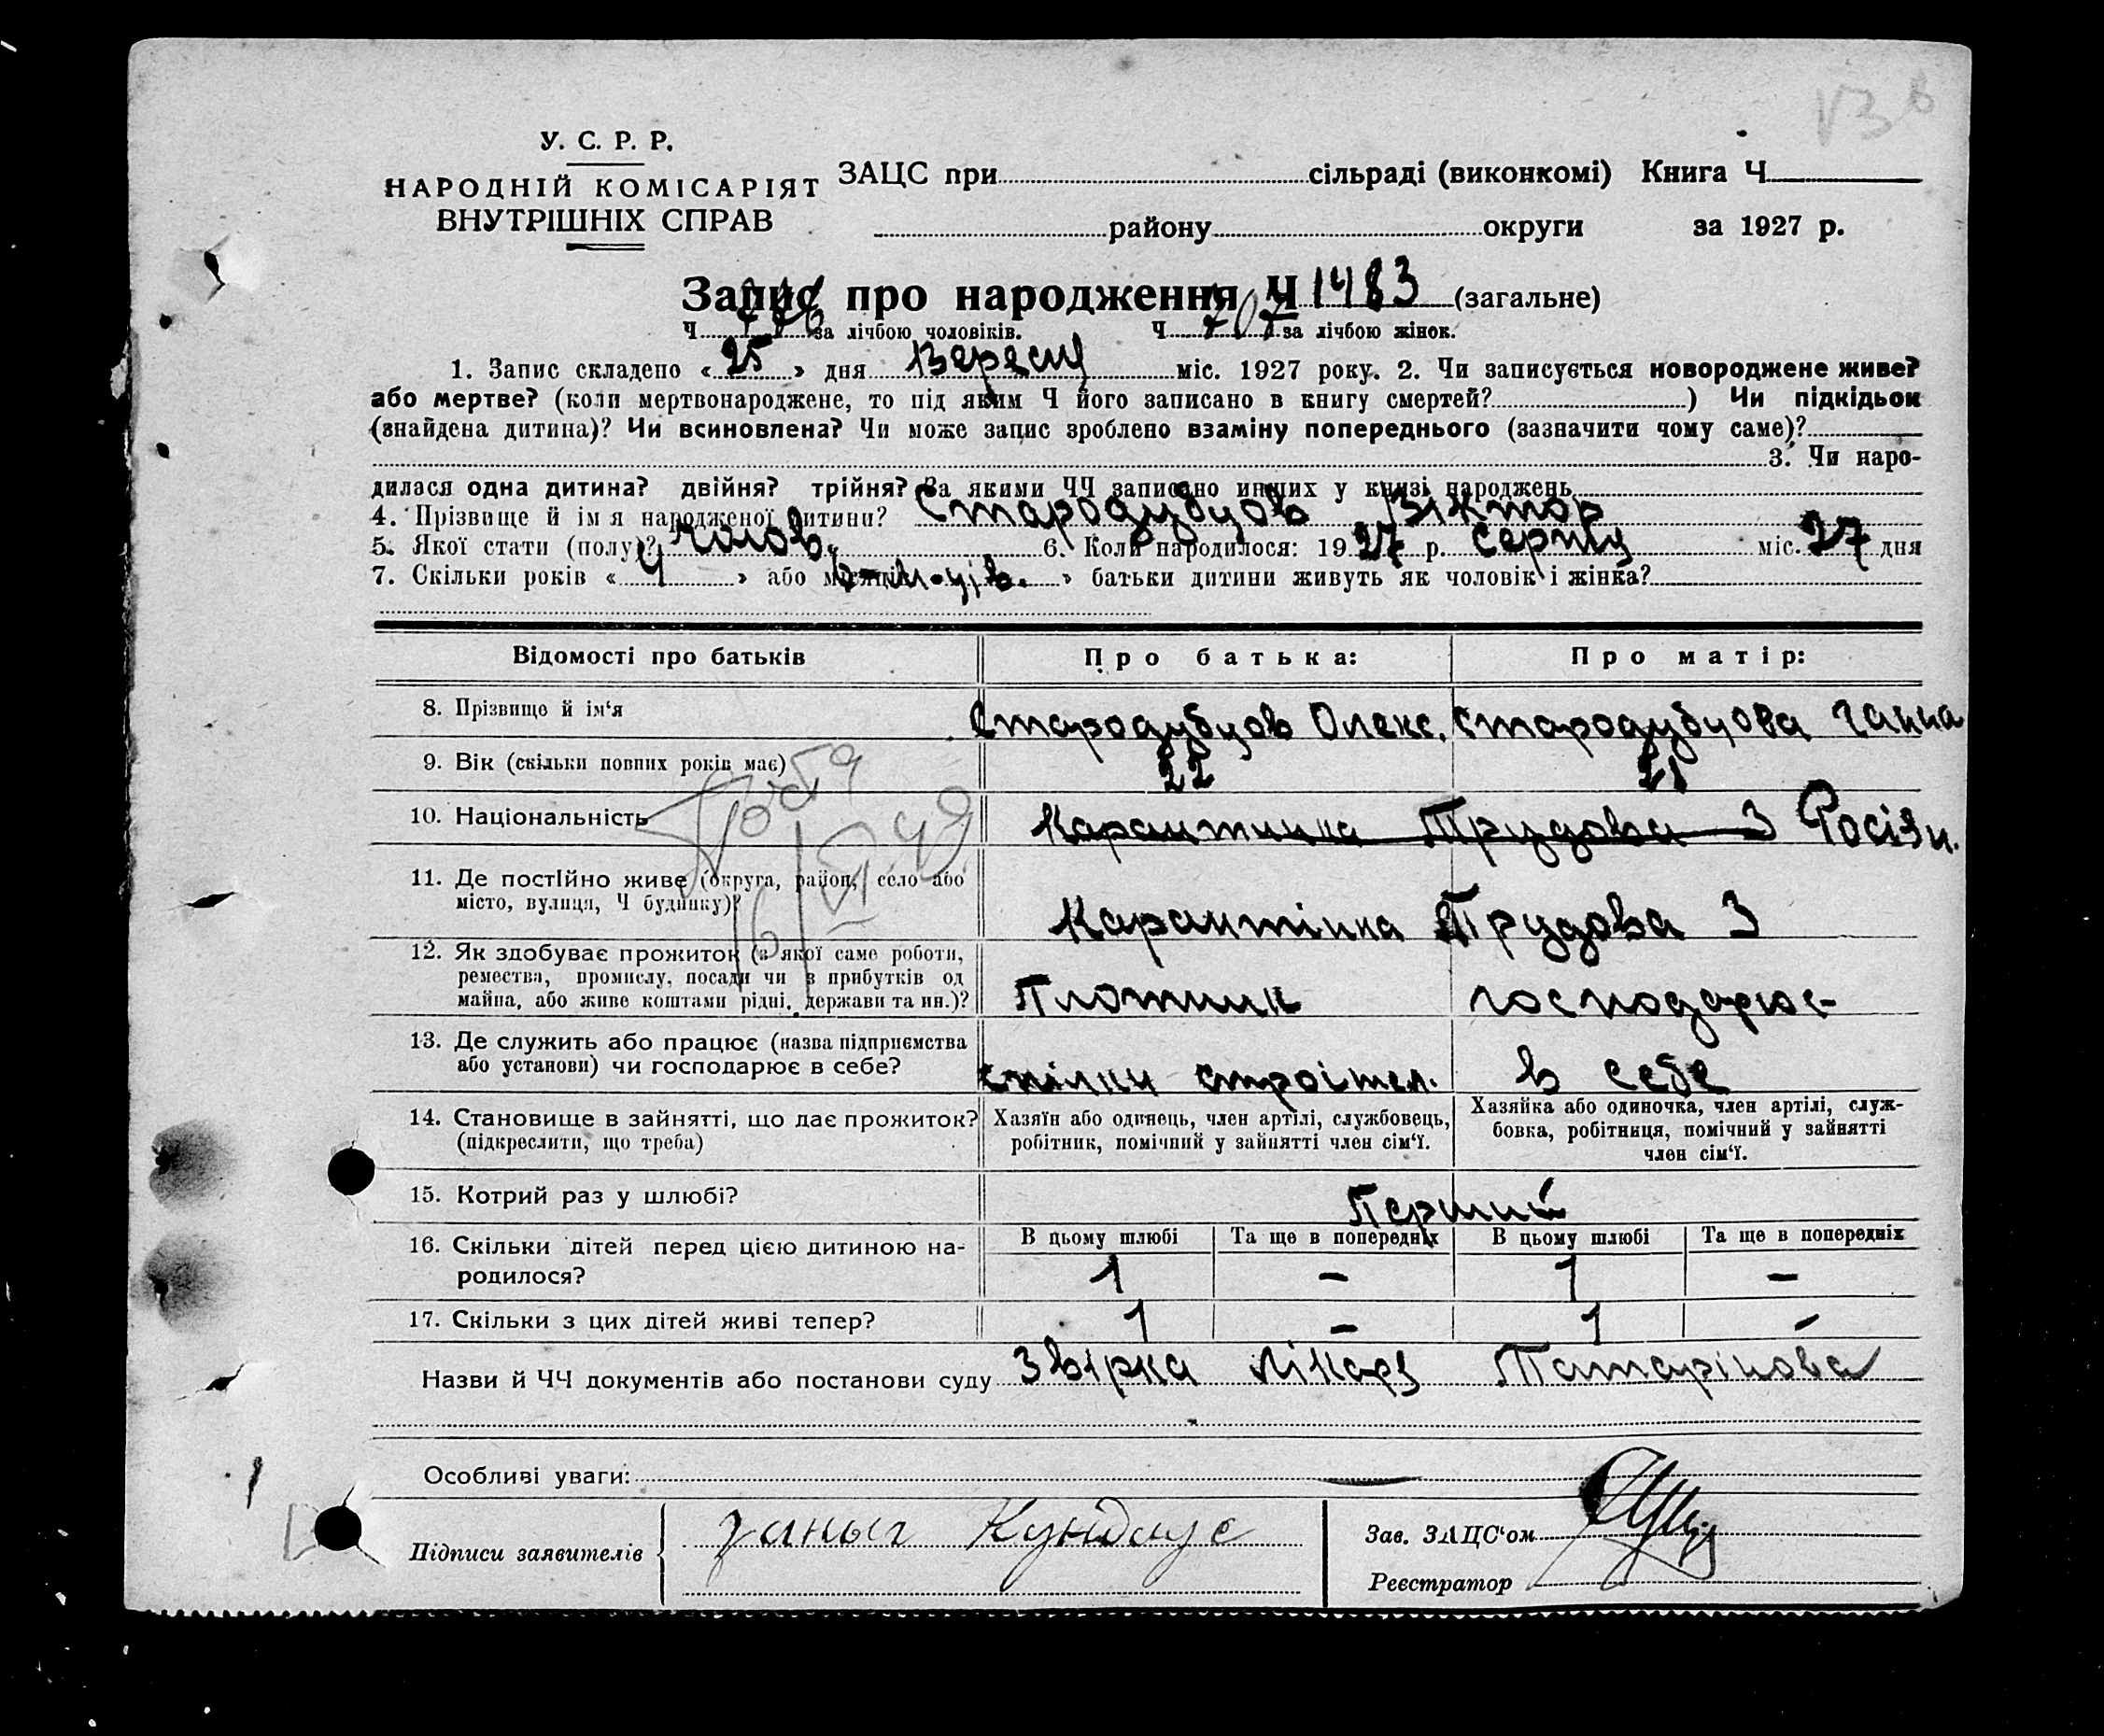 У. С. Р. Р.
НАРОДНІЙ КОМІСАРІЯТ
ВНУТРІШНІХ СПРАВ
ЗАЦС при сільраді (виконкомі) Книга Ч
району округи за 1927 р.
Запис про народження Ч 1483 (загальне)
Ч 776 за лічбою чоловіків. Ч 707 за лічбою жінок.
1. Запис складено « 25 » дня Вересня міс. 1927 року. 2. Чи записується новороджене живе?
або мертве? (коли мертвонароджене, то під яким Ч його записано в книгу смертей? ) Чи підкідьок
(знайдена дитина)? Чи всиновлена? Чи може запис зроблено взаміну попереднього (зазначити чому саме)?
3. Чи наро-
дилася одна дитина? двійня? трійня? За якими ЧЧ записано инших у книзі народжень
4. Прізвище й ім я народженої дитини? Стародубцов Віктор
5. Якої стати (полу)? Чолов. 6. Коли народилося: 19 27 р. серпня міс. 27 дня
7. Скільки років « 4 » або місяців » батьки дитини живуть як чоловік і жінка?
Відомості про батьків
Про батька:
Про матір:
8. Прізвище й ім‘я
Стародубцов Олекс.
Стародубцова Ганна
9. Вік (скільки повних років має)
22
21
10. Національність
Карантинна Трудова 3 Росіян.
11. Де постІйно живе (округа, район, село або
місто, вулиця, Ч будинку)?
Карантінна Трудова 3
12. Як здобуває прожиток (з якої саме роботи,
ремества, промислу, посади чи з прибутків од
майна, або живе коштами рідні, держави та ин.)?
Плотник
господарює-
13. Де служить або працює (назва підприємства
або установи) чи господарює в себе?
спілки строітел.
в себе
14. Становище в зайнятті, що дає прожиток?
(підкреслити, що треба)
Хазяїн або одинець, член артілі, службовець,
робітник, помічний у зайнятті член сім‘ї.
Хазяйка або одиночка, член артілі, служ-
бовка, робітниця, помічний у зайнятті
член сім‘ї.
15. Котрий раз у шлюбі?
Перший
16. Скільки дітей перед цією дитиною на-
родилося?
В цьому шлюбі
Та ще в попередніх
В цьому шлюбі
Та ще в попередніх
1 – 1 –
17. Скільки з цих дітей живі тепер?
1 – 1 –
Назви й ЧЧ документів або постанови суду Звірка лікаря Татарінова
Особливі уваги:
Підписи заявителів
Зав. ЗАЦС‘ом
Реєстратор